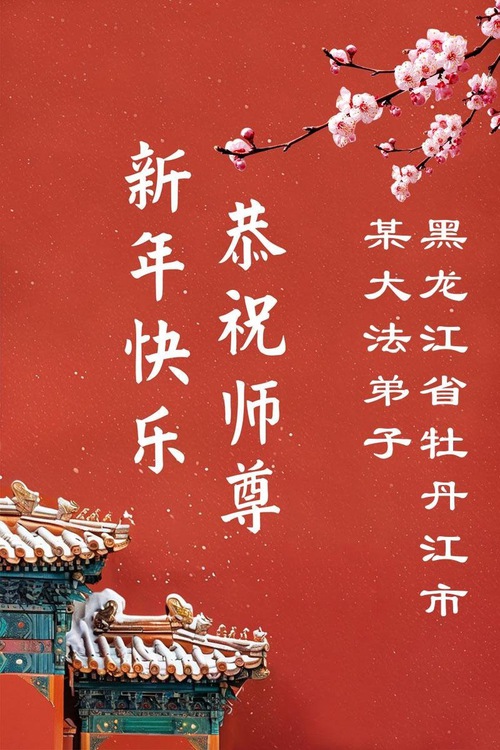 黑龙江省牡丹江市
某大法弟子
恭祝师尊
新年快乐